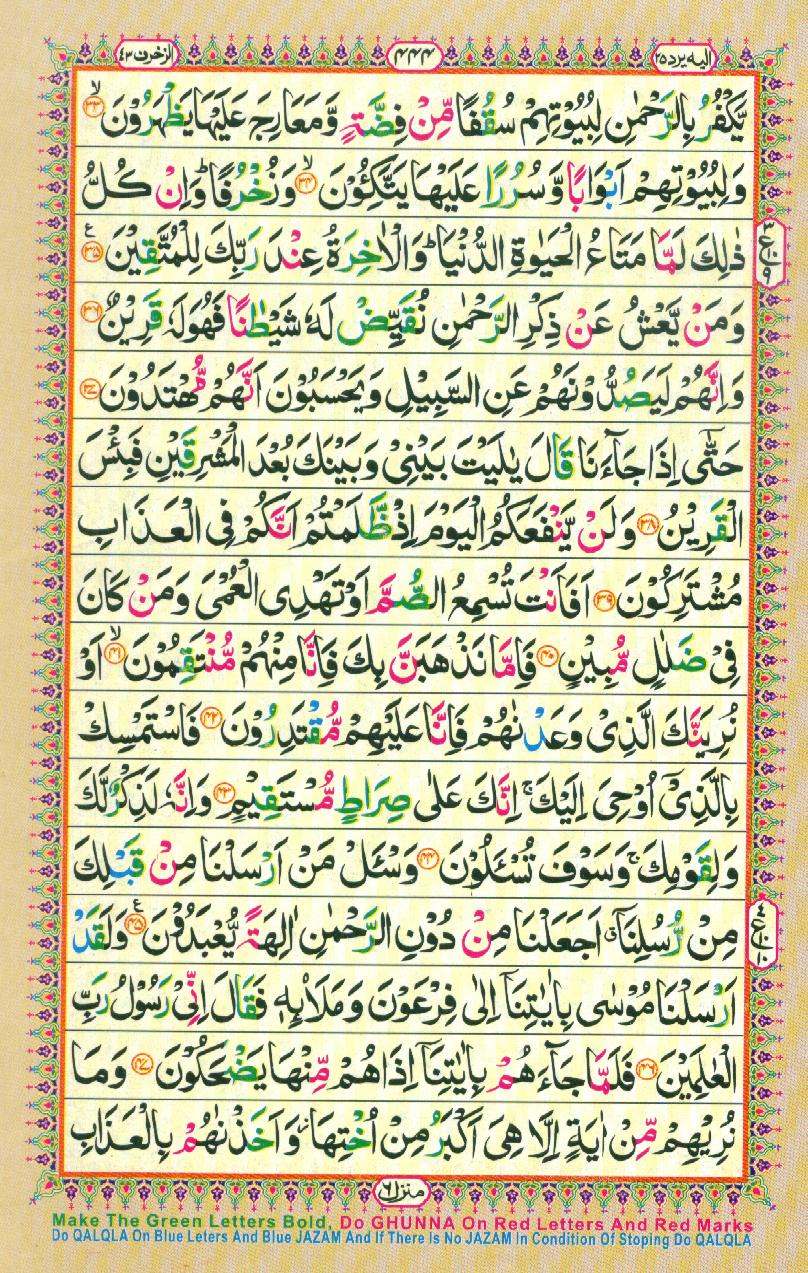 الیه یرد ۲۵ ۴۴۴ الزخرف ۴۳
یَّكْفُرُ بِالرَّحْمٰنِ لِبُیُوْتِهِمْ سُقُفًا مِّنْ فِضَّةٍ وَّمَعَارِجَ عَلَیْهَا یَظْهَرُوْنَ ۙ‏﴿۳۳﴾
وَلِبُیُوْتِهِمْ اَبْوَابًا وَّسُرُرًا عَلَیْهَا یَتَّكِـُٔوْنَ ۙ‏﴿۳۴﴾ وَزُخْرُفًا ؕ وَاِنْ كُلُّ
ذٰلِكَ لَمَّا مَتَاعُ الْحَیٰوةِ الدُّنْیَا ؕ وَالْاٰخِرَةُ عِنْدَ رَبِّكَ لِلْمُتَّقِیْنَ ﴿۳۵﴾ ع
وَمَنْ یَّعْشُ عَنْ ذِكْرِ الرَّحْمٰنِ نُقَیِّضْ لَهٗ شَیْطٰنًا فَهُوَ لَهٗ قَرِیْنٌ ﴿۳۶﴾
وَاِنَّهُمْ لَیَصُدُّوْنَهُمْ عَنِ السَّبِیْلِ وَیَحْسَبُوْنَ اَنَّهُمْ مُّهْتَدُوْنَ ﴿۳۷﴾
حَتّٰۤی اِذَا جَآءَنَا قَالَ یٰلَیْتَ بَیْنِیْ وَبَیْنَكَ بُعْدَ الْمَشْرِقَیْنِ فَبِئْسَ
الْقَرِیْنُ ﴿۳۸﴾ وَلَنْ یَّنْفَعَكُمُ الْیَوْمَ اِذْ ظَّلَمْتُمْ اَنَّكُمْ فِی الْعَذَابِ
مُشْتَرِكُوْنَ ﴿۳۹﴾ اَفَاَنْتَ تُسْمِعُ الصُّمَّ اَوْ تَهْدِی الْعُمْیَ وَمَنْ كَانَ
فِیْ ضَلٰلٍ مُّبِیْنٍ ﴿۴۰﴾ فَاِمَّا نَذْهَبَنَّ بِكَ فَاِنَّا مِنْهُمْ مُّنْتَقِمُوْنَ ۙ‏﴿۴۱﴾ اَوْ
نُرِیَنَّكَ الَّذِیْ وَعَدْنٰهُمْ فَاِنَّا عَلَیْهِمْ مُّقْتَدِرُوْنَ ﴿۴۲﴾ فَاسْتَمْسِكْ
بِالَّذِیْۤ اُوْحِیَ اِلَیْكَ ۚ اِنَّكَ عَلٰی صِرَاطٍ مُّسْتَقِیْمٍ ﴿۴۳﴾ وَاِنَّهٗ لَذِكْرٌ لَّكَ
وَلِقَوْمِكَ ۚ وَسَوْفَ تُسْـَٔلُوْنَ ﴿۴۴﴾ وَسْـَٔلْ مَنْ اَرْسَلْنَا مِنْ قَبْلِكَ
مِنْ رُّسُلِنَاۤ ٖۗ اَجَعَلْنَا مِنْ دُوْنِ الرَّحْمٰنِ اٰلِهَةً یُّعْبَدُوْنَ ﴿۴۵﴾ ع وَلَقَدْ
اَرْسَلْنَا مُوْسٰی بِاٰیٰتِنَاۤ اِلٰی فِرْعَوْنَ وَمَلَا۠ئِهٖ فَقَالَ اِنِّیْ رَسُوْلُ رَبِّ
الْعٰلَمِیْنَ ﴿۴۶﴾ فَلَمَّا جَآءَهُمْ بِاٰیٰتِنَاۤ اِذَا هُمْ مِّنْهَا یَضْحَكُوْنَ ﴿۴۷﴾ وَمَا
نُرِیْهِمْ مِّنْ اٰیَةٍ اِلَّا هِیَ اَكْبَرُ مِنْ اُخْتِهَا ؗ وَاَخَذْنٰهُمْ بِالْعَذَابِ
منزل ۶
Make The Green Letters Bold, Do GHUNNA On Red Letters And Red Marks
Do QALQLA On Blue Leters And Blue JAZAM And If There Is No JAZAM In Condition Of Stoping Do QALQLA